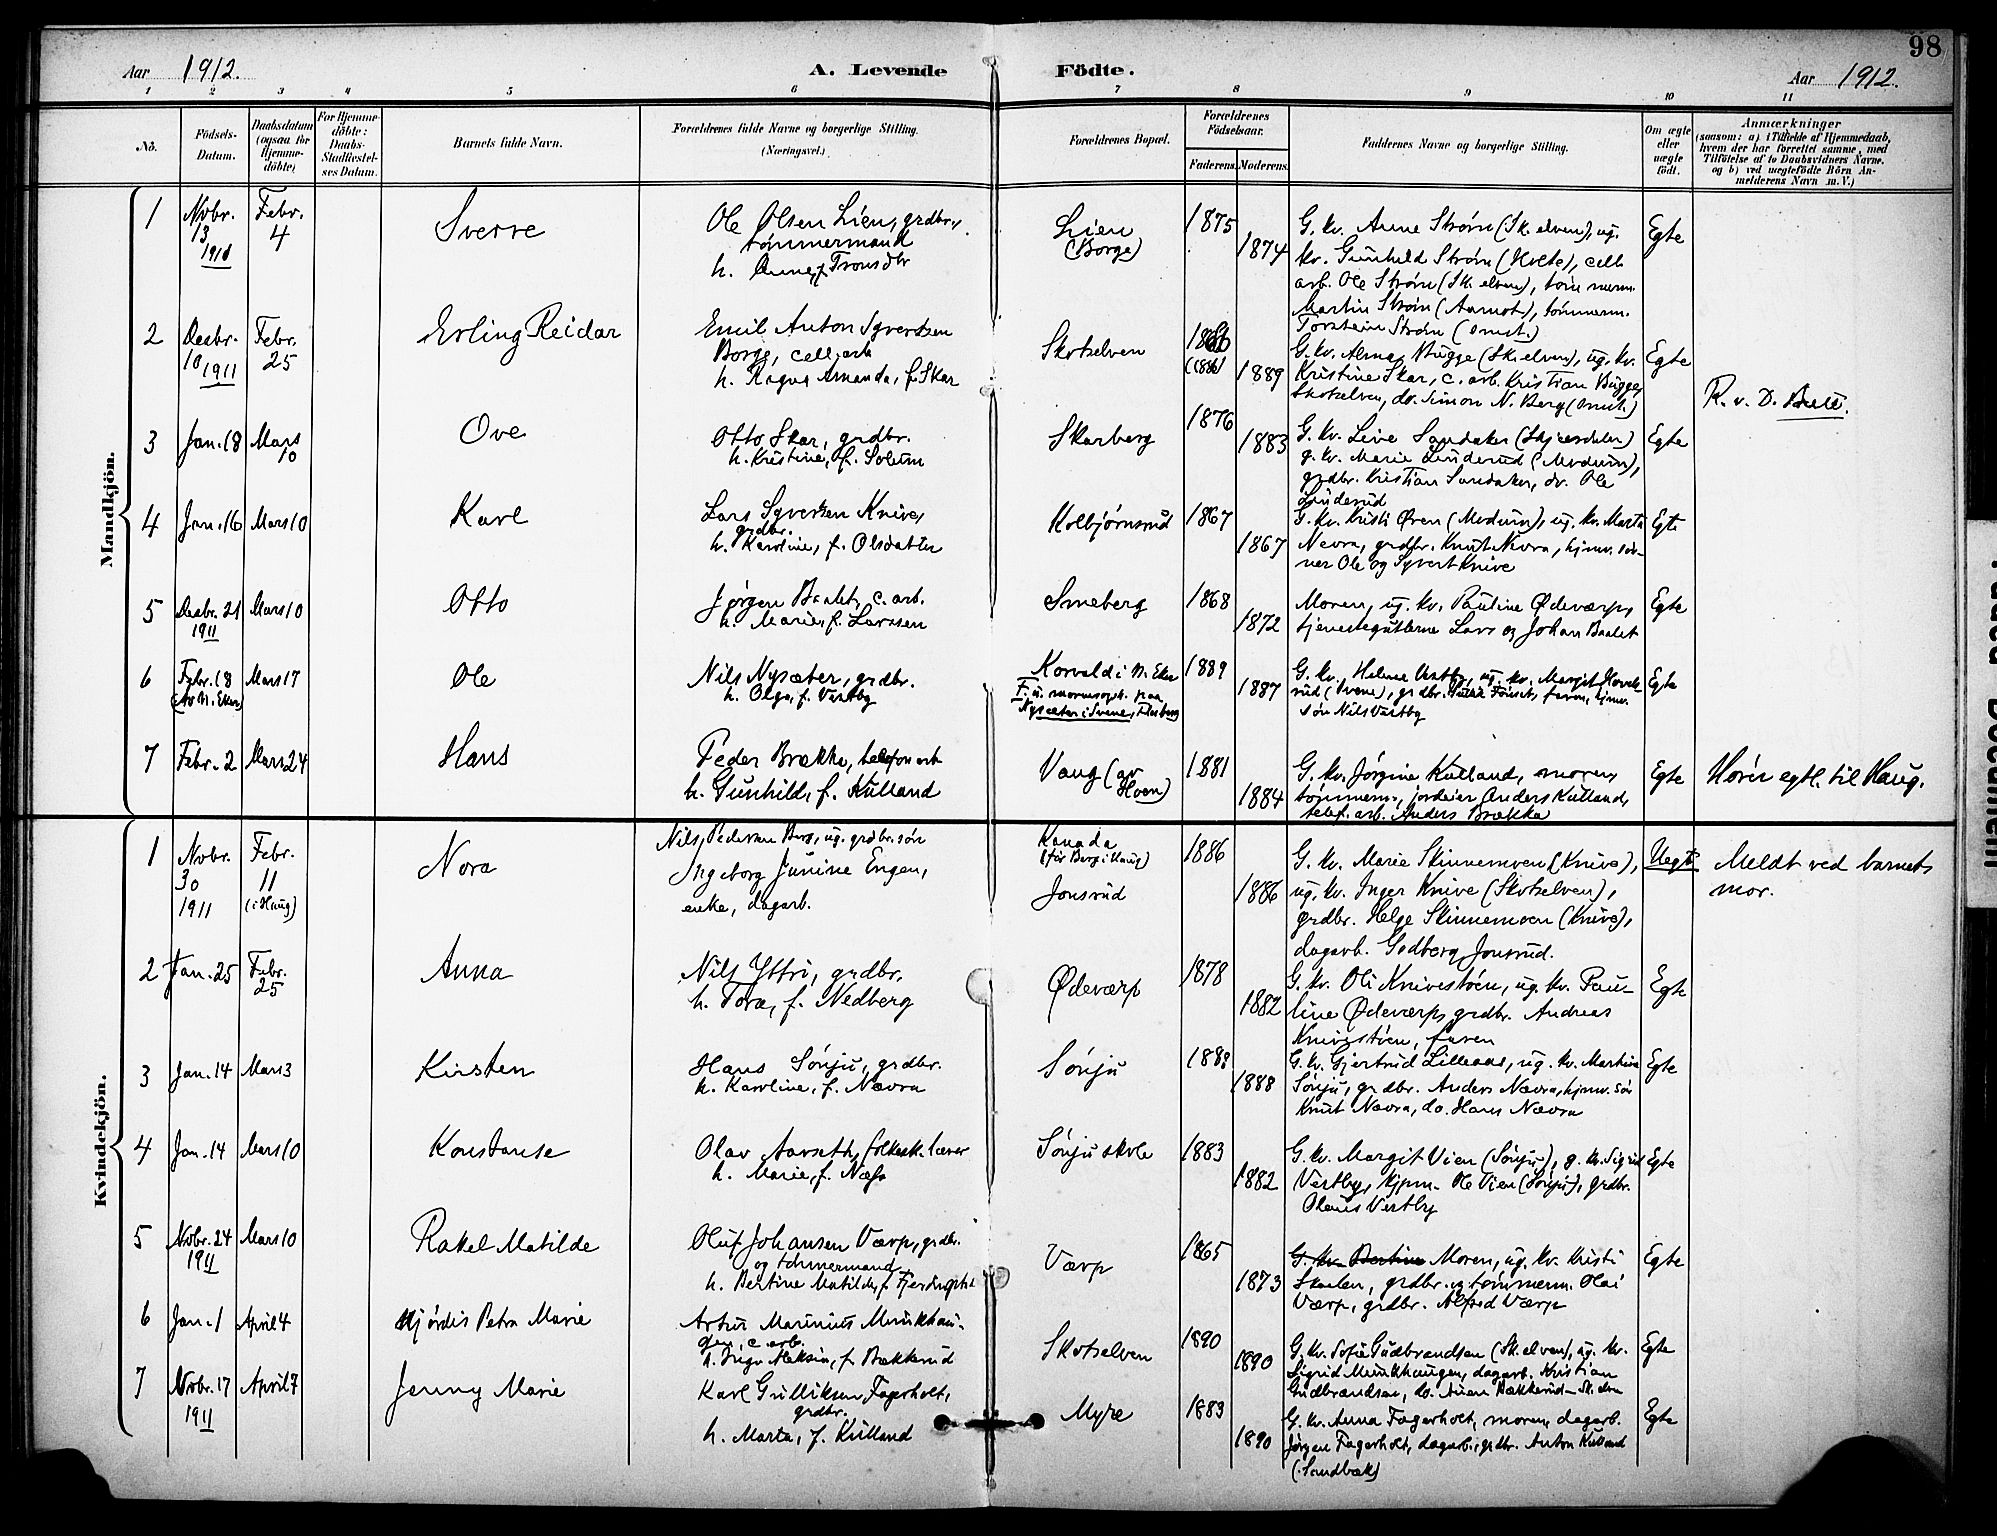 98
Aar 1912.
A. Levende Födte.
Aar 1912.
1 2 3 4 5 6 7 8 9 10 11
No.
Födsels-Datum.
Daabsdatum (ogsaa for Hjemmedöbte)
For Hjemmedöbte: Daabs-Stadfestelses Datum.
Barnets fulde Navn.
Forældrenes fulde Navne og borgerlige Stilling. (Næringsvei.)
Forældrenes Bopæl.
Forældrenes Födselsaar.
Faderens. Moderens.
Faddernes Navne og borgerlige Stilling.
Om ægte eller uægte födt.
Anmærkninger
(saasom: a) i Tilfælde af Hjemmedaab,
hvem der har forrettet samme, med
Tilföielse af to Daabsvidners Navne.
og b) ved uægtefödte Börn An-
melderens Navn m. V.)
Mandkjön.
1 Novbr. 13 Febr. 4 Sverre
Ole Olsen Lien, grdbr.,
tømmermand
h. Anne, f. Tronsdtr
Lien (Borge) 1875 1874
G. kv. Anne Strøm (Sk. elven), ug.
kv. Gunhild Strøm (Holte), cell.
arb. Ole Strøm (Sk. elven), tømmerm.
Martin Strøm (Aamot), tømmerm.
Torstein Strøm (omst.)
Egte
2 Desbr. 10 1911 Febr. 25 Erling Reidar
Emil Anton Syvertsen
Borge, cell. arb.
h. Ragna Amanda, f. Skar
Skotselven 1889
G. kv. Alma Bugge (Sk. elven), ug. kv.
Kristine Skar, c. arb. Kristian Bugge,
Skotselven, do. Simon N. Berg (omst.)
Egte
R. v. D.
3 Jan. 18 Mars 10 Ove
Otto Skar, grdbr.
h. Kristine, f. Solum
Skarberg 1876 1883
G. kv. Live Sandaker
g. kv. Marie Linderud (Modum),
grdbr. Kristian Sandaker, do. Ole
Linderud
Egte
4 Jan. 16 Mars 10 Karl
Lars Syvertsen Knive,
grdbr.
h. Karoline, f. Olsdatter
Kolbjørnsrud 1867 1867
G. kv. Kristi Øren (Modum), ug. kv. Marta
Nevra, grdbr. Knut Nevra, hjmv. søn-
ner Ole og Syvert Knive
Egte
5 Desbr. 21 1911 Mars 10 Otto
Jørgen Baalst, c. arb.
h. Marie, f. Larssen
Smeberg 1868 1872
Moren, ug. kv. Pauline Ødeværp,
tjenestegutterne Lars og Johan Baalst
Egte
6 Febr. 18 Mars 17 Ole
Nils Nysæter, grdbr.
h. Olga, f. Vestby
Korvald i N. Eker
Nysæter i Svene, Flesberg
1889 1887
G. kv. Helene Vestby, ug. kv. Margit Hovde-
rud (Svene), grdbr. faren, hjmv.
søn Nils Vestby
Egte
7 Febr. 2 Mars 24 Hans
Peder Brække, telefonarb.
h. Gunhild, f. Kulland
Vang (av Hoen) 1881 1884
G. kv. Jørgine Kulland, moren,
tømmerm., jordeier Anders Kulland,
telef. arb. Anders Brække
Egte
Hører egtl. til Haug.
Kvindekjön.
1 Novbr. 30 1911 Febr. 11 (i Haug) Nora
Nils Pedersen Berg, ug. grdbr. søn
Ingeborg Junine Engen,
enke, dagarb.
Kanada (før Berg i Haug)
Jonsrud
1886 1886
G. kv. Marie Skinnemoen (Knive),
ug. kv. Inger Knive (Skotselven),
grdbr. Helge Skinnemoen (Knive),
dagarb. Godberg Jonsrud.
Uegte
Meldt ved barnets
mor.
2 Jan. 25 Febr. 25 Anna
Nils Yttri, grdbr.
h. Tora, f. Nedberg
Ødeværp 1878 1882
G. kv. Oli Knivestøen, ug. kv. Pau-
line Ødeværp, grdbr. Andreas
Knivestøen, faren
Egte
3 Jan. 14 Mars 3 Kirsten
Hans Sønju, grdbr.
h. Karoline, f. Nævra
Sønju 1888 1888
G. kv. Gjertrud Lilleaas, ug. kv. Martina
Sønju, grdbr. Anders Nævra, hjmv. søn
Knut Nævra, do. Hans Nævra
Egte
4 Jan. 14 Mars 10 Konstanse
Olav Aarseth, folkesk. lærer
h. Marie, f. Næss
Sønju skole 1883 1882
G. kv. Margit Vien (Sønju), g. kv. Sigrid
Vestby, kjpm. Ole Vien (Sønju), grdbr.
Olaus Vestby
Egte
5 Novbr. 24 1911 Mars 10 Rakel Matilde
Oluf Johansen Værp, grdbr.
og tømmermand
h. Bertine Matilde, f.
Værp 1865 1873
G. kv. Bertine Moren, ug. kv. Kristi
Skalen, grdbr. og tømmerm. Olai
Værp, grdbr. Alfred Værp
Egte
6 Jan. 1 April 4 Hjørdis Petra Marie
Artur Marinius Munkhau-
gen, c. arb.
h. Inga Aleksia, f. Bækkerud
Skotselven 1890 1890
G. kv. Sofie Gudbrandsen (Sk. elven), ug. kv.
Sigrid Munkhaugen, dagarb. Kristian
Gudbrandsen, do. Bækkerud – Sk. elven
Egte
7 Novbr. 17 1911 April 7 Jenny Marie
Karl Gulliksen Fagerholt,
grdbr.
h. Marta, f. Kulland
Myre 1883 1890
G. kv. Anna Fagerholt, moren, dagarb.
Jørgen Fagerholt, dagarb., grdbr. Anton Kulland
(Sandbæk)
Egte